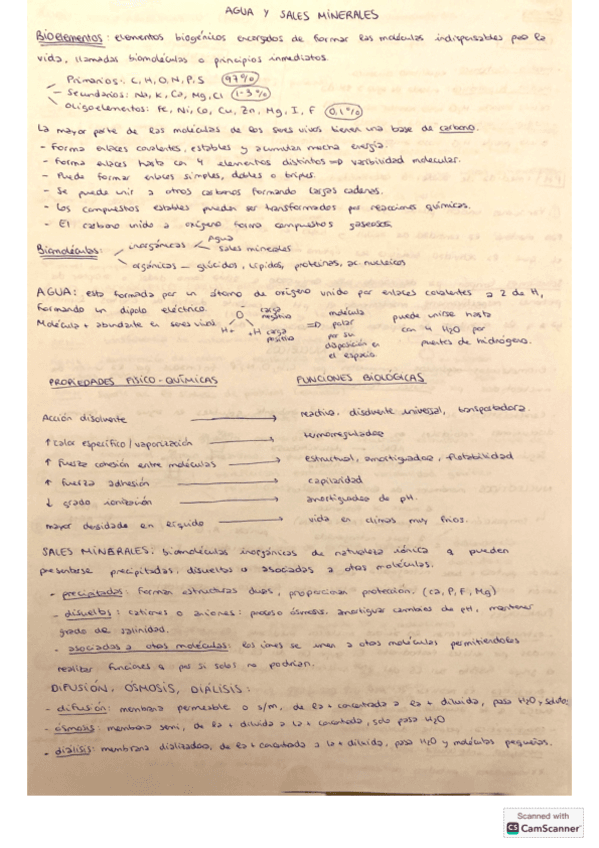 AGUA Y SALES MINERALES
Bioelementos: elementos biogénicos encargados de formar las moléculas indispensables para la
vida, llamadas biomoléculas o principios inmediatos.
Primarios: C, H, O, N, P, S (97%)
Secundarios: Na, K, Ca, Mg, Cl (1-3%)
Oligoelementos: Fe, Ni, Co, Cu, Zn, Mg, I, F (0,1%)
La mayor parte de las moléculas de los seres vivos tienen una base de carbono.
- Forma enlaces covalentes, estables y acumulan mucha energía.
- Forma enlaces hasta con 4 elementos distintos => variabilidad molecular.
- Puede formar enlaces simples, dobles o triples.
- Se puede unir a otros carbonos formando largas cadenas.
- Los compuestos estables pueden ser transformados por reacciones químicas.
- El carbono unido a oxígeno forma compuestos gaseosos.
Biomoléculas: inorgánicas Agua
sales minerales
orgánicas - glúcidos, lípidos, proteínas, ac. nucleicos
AGUA: esta formada por un átomo de oxígeno unido por enlaces covalentes a 2 de H,
formando un dipolo eléctrico.
Molécula + abundante en seres vivos
O carga negativa
H+ +H carga positiva
=> molécula polar por su disposición en el espacio.
puede unirse hasta con 4 H2O por puentes de hidrógeno.
PROPIEDADES FISICO-QUÍMICAS FUNCIONES BIOLÓGICAS
Acción disolvente → reactiva, disolvente universal, transportadora.
↑ calor específico / vaporización → termorregulador
↑ fuerza cohesión entre moléculas → estructural, amortiguador, flotabilidad
↑ fuerza adhesión → capilaridad
↓ grado ionización → amortiguador de pH.
mayor densidad en líquido → vida en climas muy fríos.
SALES MINERALES: biomoléculas inorgánicas de naturaleza iónica q pueden
presentarse precipitadas, disueltas o asociadas a otras moléculas.
- precipitadas: forman estructuras duras, proporcionan protección. (Ca, P, F, Mg)
- disueltas: cationes o aniones: proceso ósmosis, amortiguar cambios de pH, mantener
grado de salinidad.
- asociadas a otras moléculas: los iones se unen a otras moléculas permitiéndoles
realizar funciones q por si solas no podrían.
DIFUSIÓN, ÓSMOSIS, DIÁLISIS:
- difusión: membrana permeable o s/m, de la + concentrada a la + diluida, pasa H2O y soluto
- ósmosis: membrana semi, de la + diluida a la + concentrada, solo pasa H2O
- diálisis: membrana dializadora, de la + concentrada a la + diluida, pasa H2O y moléculas pequeñas.
Scanned with
CS CamScanner